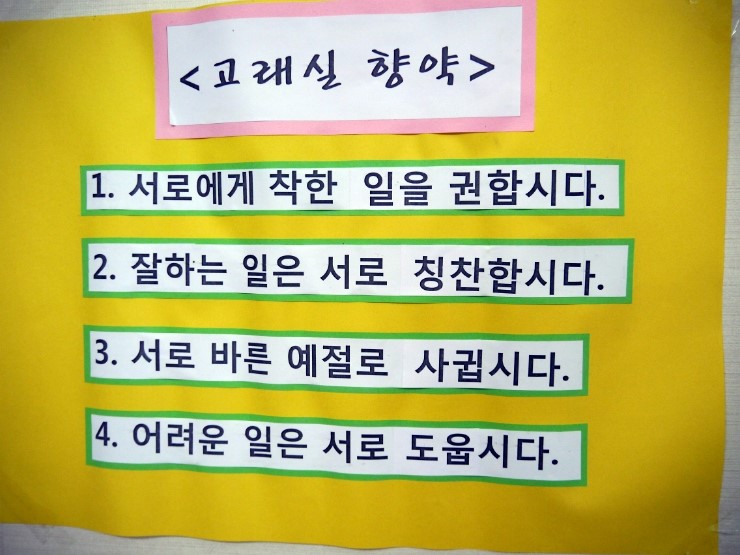 <고래실 향약>
1. 서로에게 착한 일을 권합시다.
2. 잘하는 일은 서로 칭찬합시다.
3. 서로 바른 예절로 사귑시다.
4. 어려운 일은 서로 도웁시다.